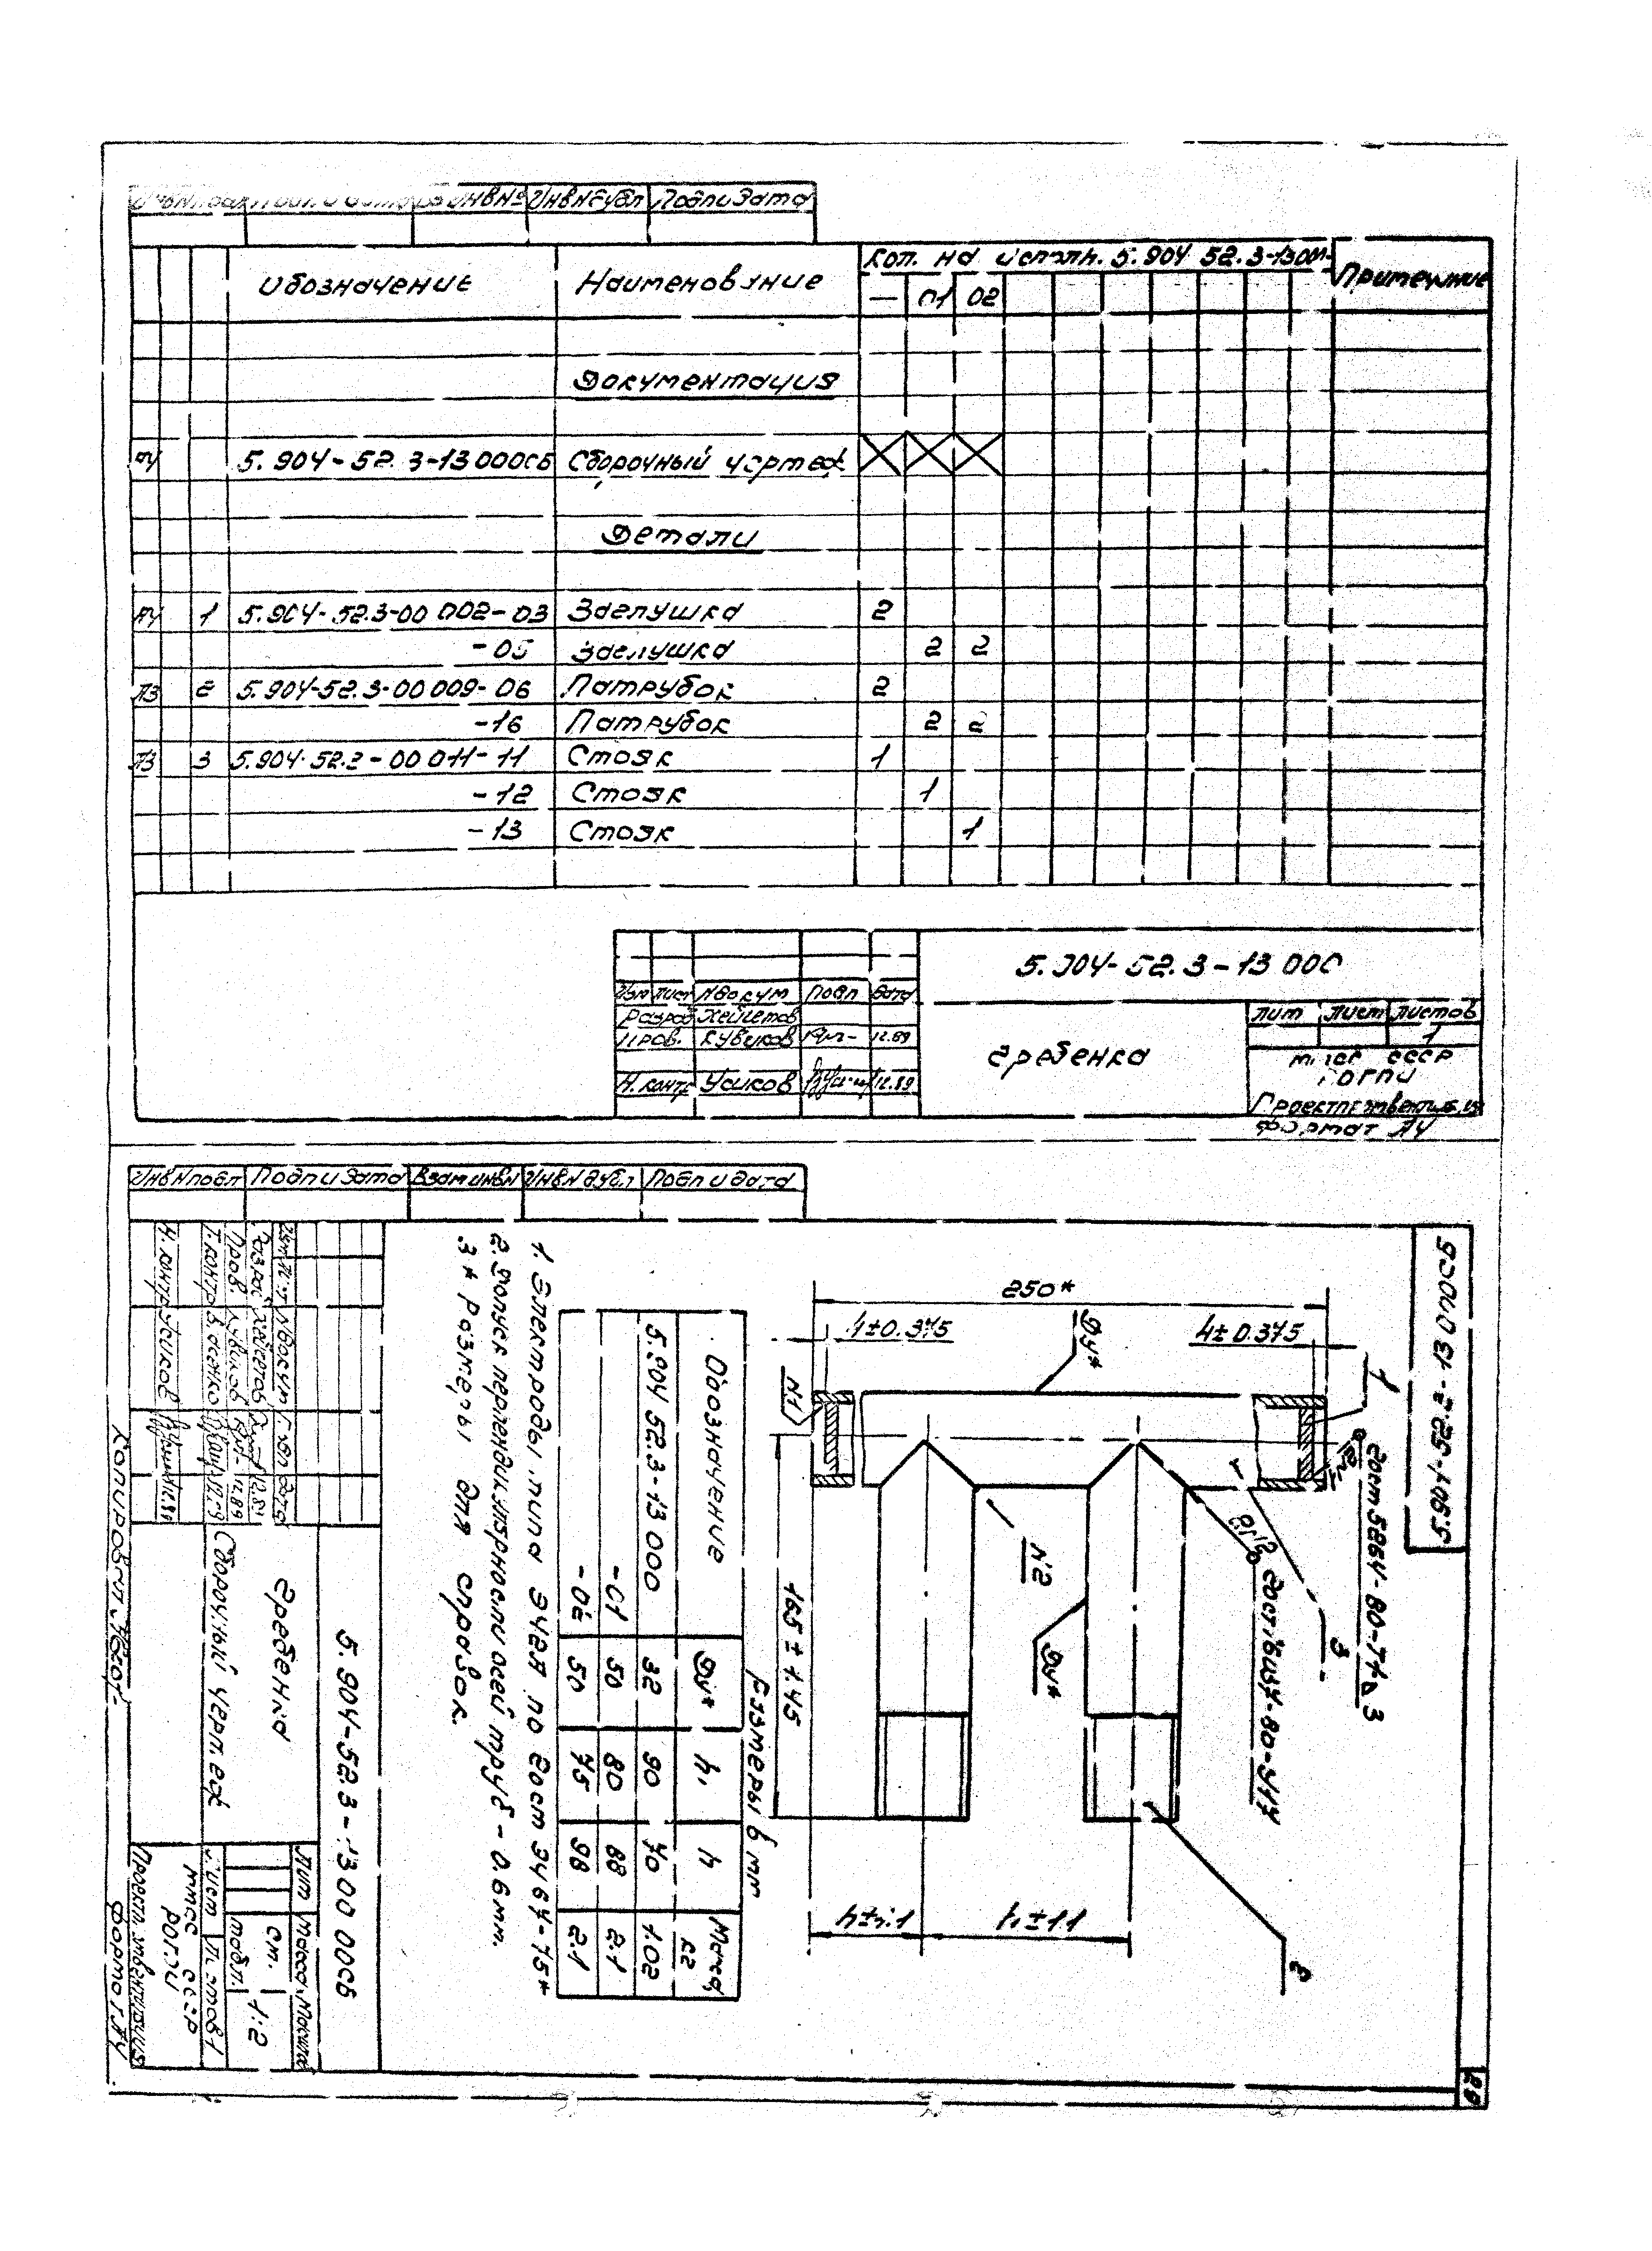 ИнвN Подп и дата
Инв№ ИнвNдубл Подп и дата
Обозначение Наименование Кол. на исполн. 5.904 52.3-13000- Примечание
— 01 02
Документация
А4 5.904-52.3-13 000СБ Сборочный чертеж
Детали
А4 1 5.904-52.3-00 002-03 Заглушка 2
-05 Заглушка 2 2
А3 2 5.904-52.3-00 009-06 Патрубок 2
-16 Патрубок 2 2
А3 3 5.904-52.3-00 011-11 Стояк 1
-12 Стояк 1
-13 Стояк 1
5.904-52.3-13 000
Изм Лист Nдокум Подп Дата
Разраб Хейгетов
Пров. Кувиков 12.89
Н.контр Усиков 12.89
Гребенка
Лит Лист Листов
1
СССР
Формат А4
ИнвNподл Подп и дата Взам инвN ИнвN дубл Подп и дата
5.904-52.3-13 000СБ
250*
4±0.375
4±0.375
Ду*
1
N1
ГОСТ 5264-80-Т1-△3
3
N2
Ду*
165±1.45
2
h±1.1
h₁±1.1
Размеры в мм
Обозначение Ду* h₁ h Масса, кг
5.904 52.3-13 000 32 90 70 1.02
-01 50 80 88 2.1
-02 50 75 98 2.1
1. Электроды типа Э42А по ГОСТ 9467-75*
2. Допуск перпендикулярности осей труб - 0.6мм.
3* Размеры для справок.
5.904-52.3-13 00 00СБ
Гребенка
Сборочный чертеж
Лит Масса Масштаб
см. табл. 1:2
Лист Листов 1
Изм Лист Nдокум Подп Дата
Разраб Хейгетов 12.89
Пров. Кувиков 12.89
Т.контр
Н.контр Усиков 12.89
СССР
Копировал
Формат А4